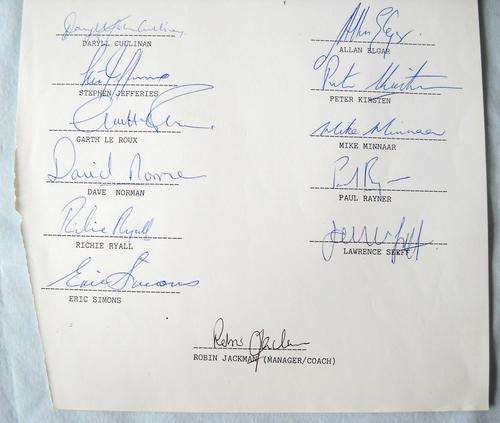 Daryll John Cullinan
DARYLL CUULINAN
ALLAN ELGAR
STEPHEN JEFFERIES
Peter Kirsten
PETER KIRSTEN
Garth Le Roux
GARTH LE ROUX
Mike Minnaar
MIKE MINNAAR
David Norman
DAVE NORMAN
Paul Rayner
PAUL RAYNER
Richie Ryall
RICHIE RYALL
LAWRENCE SEEFF
Eric Simons
ERIC SIMONS
Robin Jackman
ROBIN JACKMAN (MANAGER/COACH)